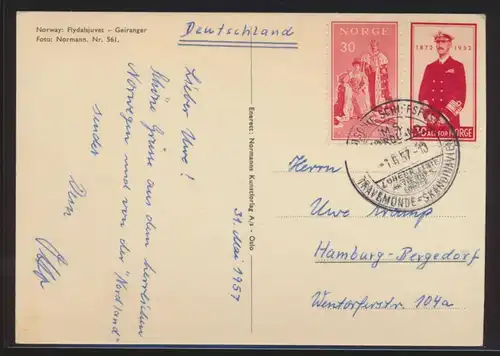 Norway: Flydalsjuvet - Geiranger
Foto: Normann. Nr. 561.
Deutschland
Lieber Uwe!
Schöne Grüße aus dem herrlichen
Norwegen und von der "Nordland"
sendet
Eneret: Normanns Kunstforlag A/s - Oslo
31. Mai 1957
NORGE
30
1872 1952
ALL FOR NORGE
DEUTSCHE SCHIFFSPOST
-1.6.57
TRAVEMÜNDE-SKANDINAVIEN
Herrn
Uwe
Hamburg-Bergedorf
Wentorferstr. 104a